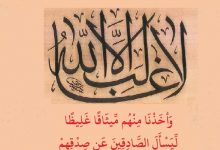 لا غالب إلا الله
وَأَخَذْنَا مِنْهُم مِّيثَاقًا غَلِيظًا
لِّيَسْأَلَ الصَّادِقِينَ عَن صِدْقِهِمْ